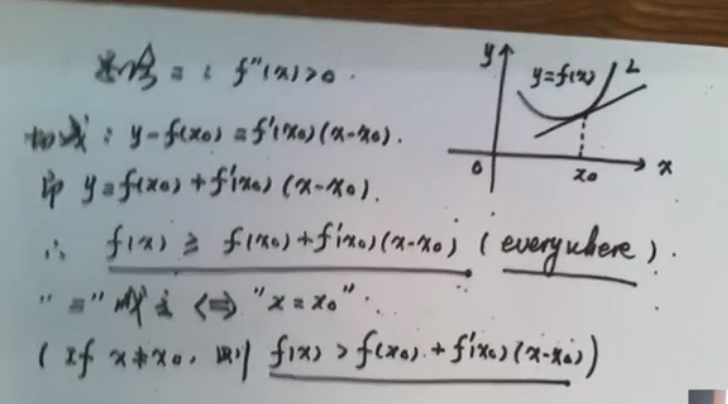 思路二：f''(x)>0.
切线：y-f(x₀)=f'(x₀)(x-x₀).
即 y=f(x₀)+f'(x₀)(x-x₀).
∴ f(x) ≥ f(x₀)+f'(x₀)(x-x₀) (everywhere).
"="成立 ⇔ "x=x₀".
(If x≠x₀, 则 f(x)>f(x₀)+f'(x₀)(x-x₀))
y
y=f(x) L
0 x₀ x